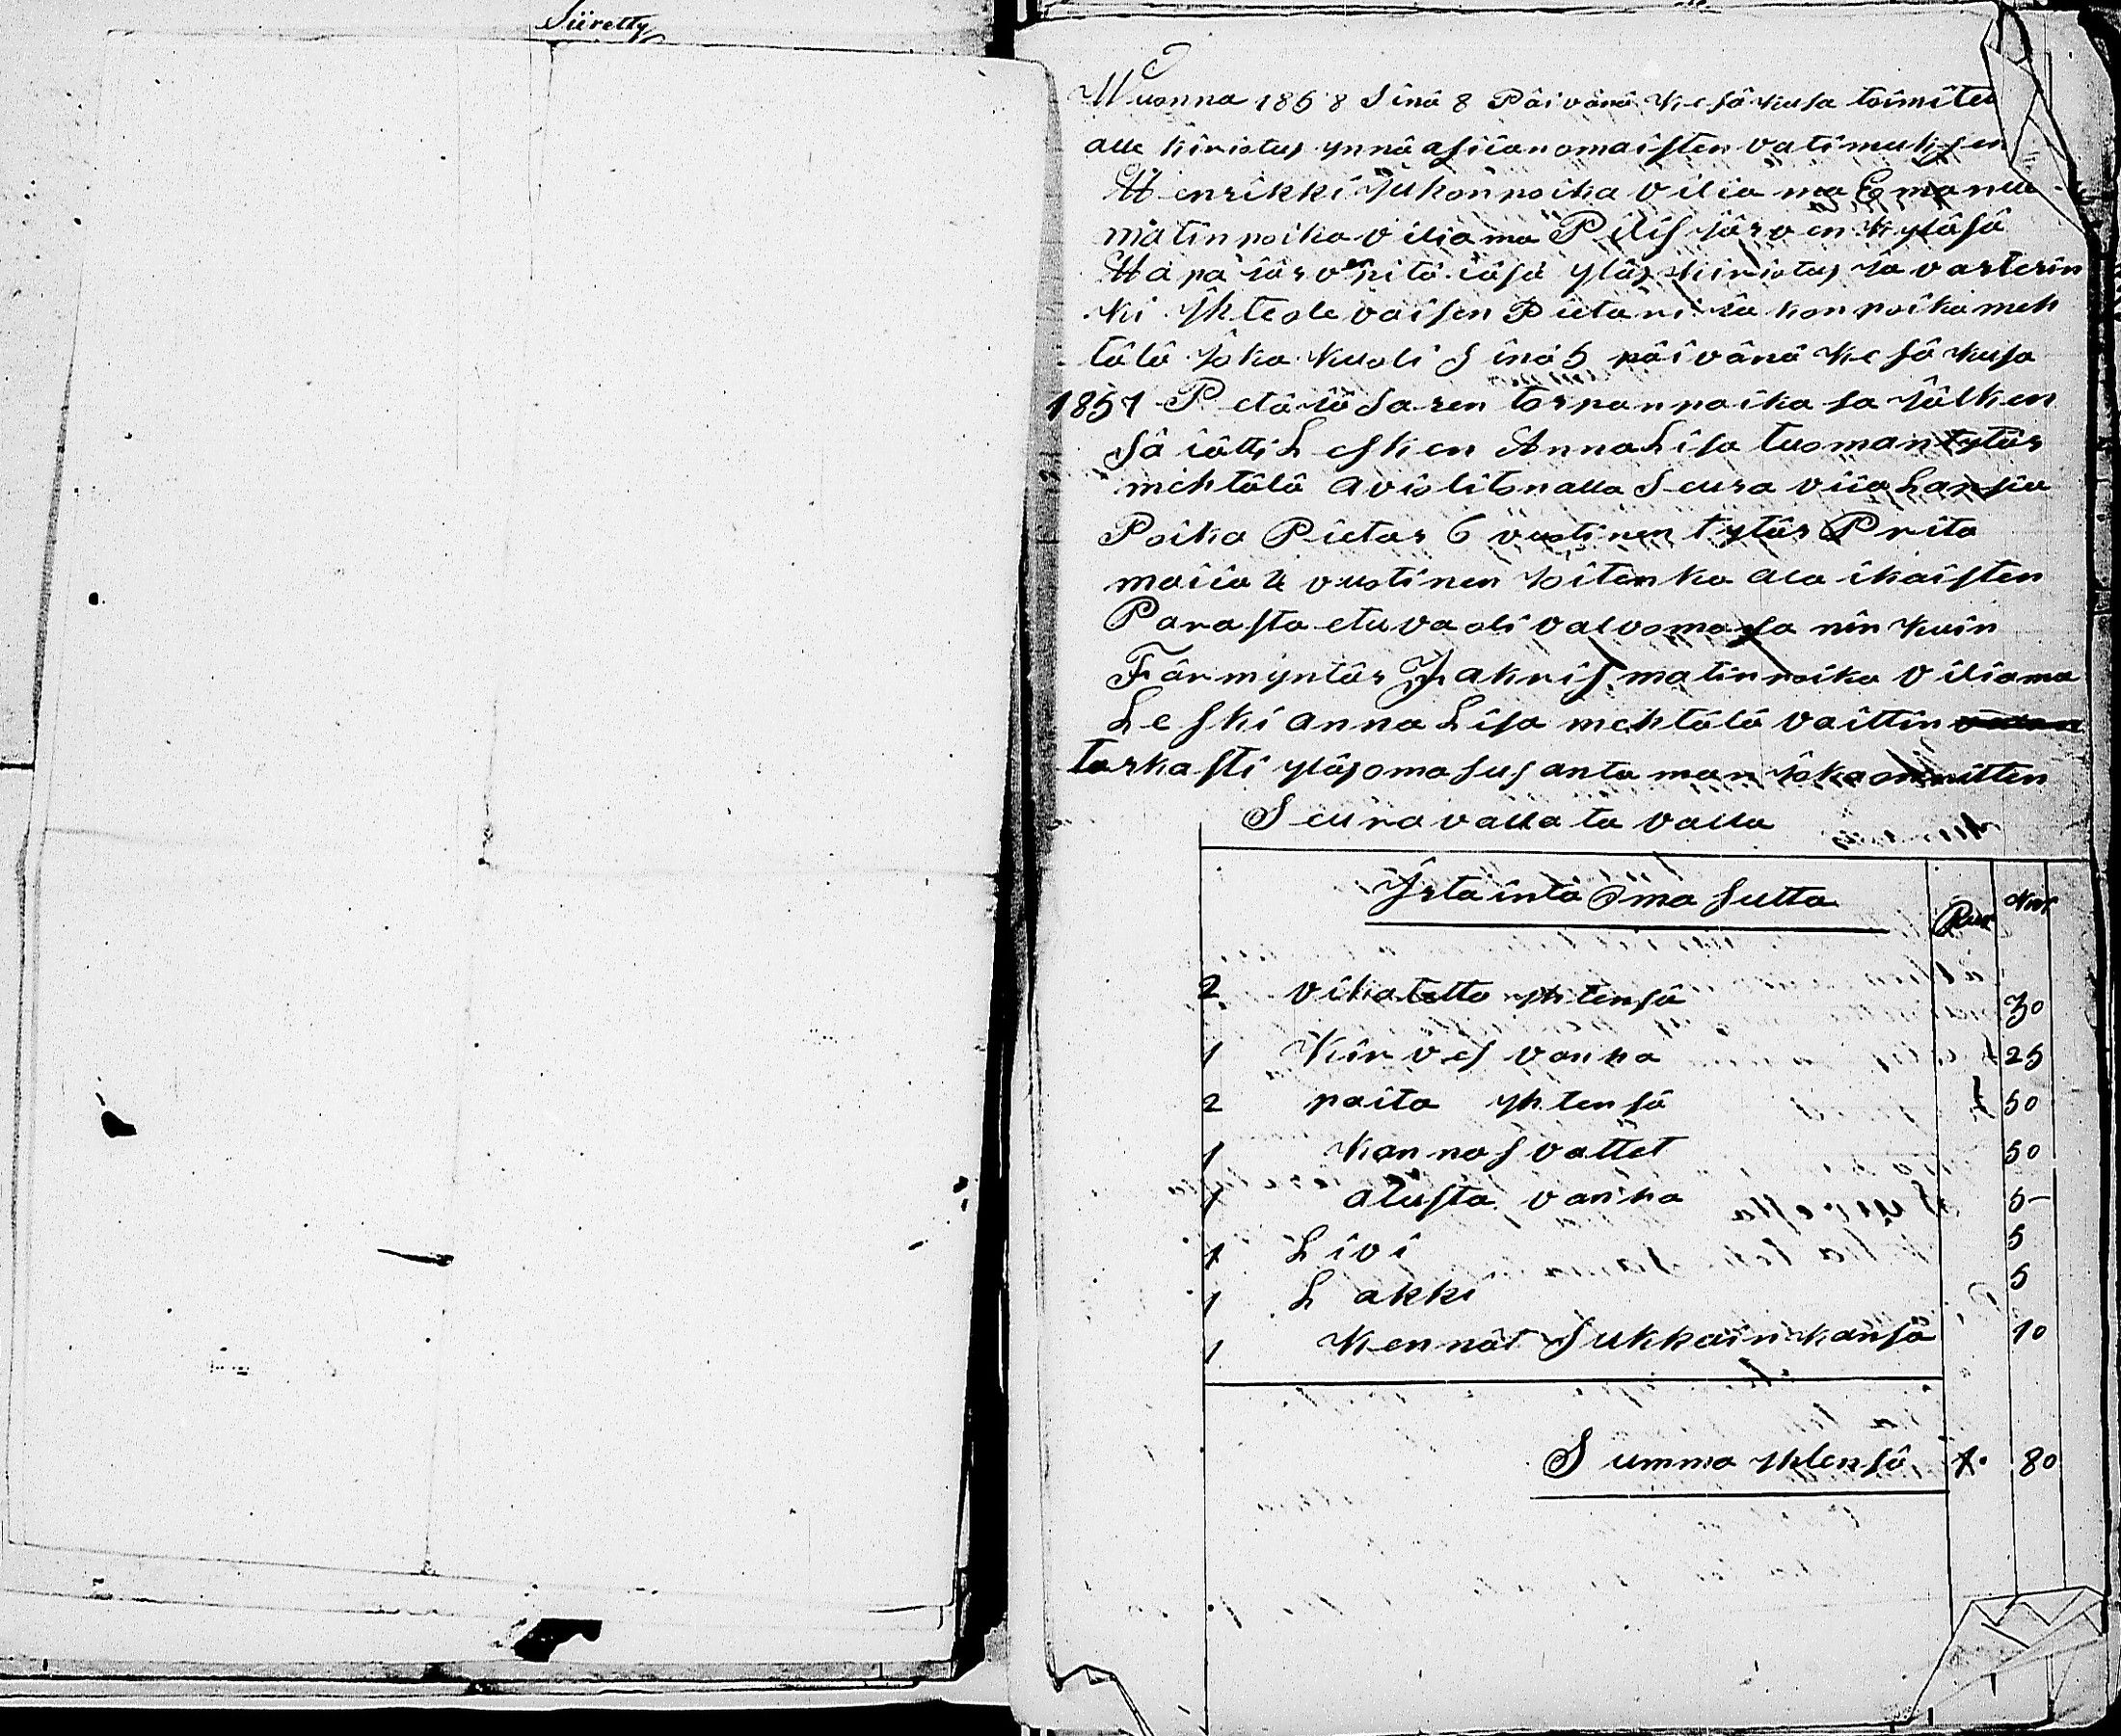 Siiretty
Wuonna 1858 Sinä 8 Päivänä Kesäkusa toimitet
alle kiriotus ynnä asiianomaisten vatimuksen
Henrikki Jukonpoika Viliama Emanue
matinpoika viliama Pilisjärven kyläsä
Hapajärven pitäiäsä ylös kiriotus ja varterin
ki Yhteolevaisen Pietari Jakonpoika meh
tälä Joka Kuoli Sinä 5 päivänä Kesäkusa
1857 Petäiäsaren torpanpoika ja Jälken
Sä iätti Lesken Anna Lisa tuomantytär
mehtälä aviolitonalla Seuraviia Lapsia
Poika Pietar 6 vuotinen tytär Prita
maiia 2 vuotinen Joitenka ala ikaisten
Parasta etuva oli valvomasa nin kuin
Färmyntär Zakris matinpoika Viliama
Leski anna Lisa mehtälä vaittin
tarkasti ylösomasus antaman Joka on nitten
Seuravalla tavalla
Irtaintä Omasutta Rup Kop
2 vikatetta yhtensä 30
1 Kirves vanha 25
2 paita yhtensä 50
1 Kannas vattet 50
1 alusta vanha 5-
1 Livi 5
1 Lakki 5
1 Kennät Sukkain kansa 10
Summa yhtensä 1. 80